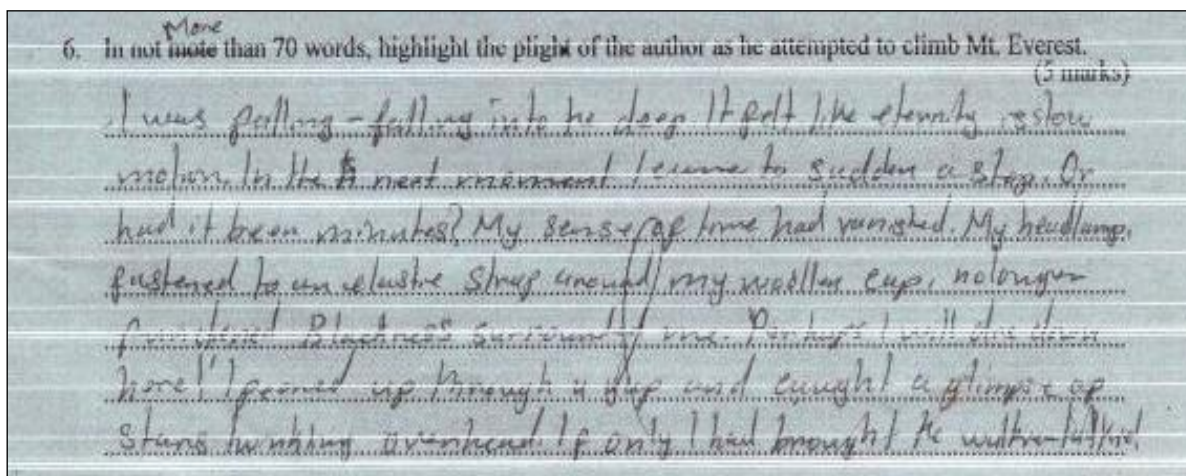 More
6. In not mote than 70 words, highlight the plight of the author as he attempted to climb Mt. Everest.
(5 marks)
I was falling - falling into he deep It felt like eternity slow
motion. In the next moment I came to sudden a stop. Or
had it been minutes? My sense of time had vanished. My headlamp,
fastened to an elastic strap around my woollen cap, no longer
Blackness surrounded me. Perhaps I will die down
here! I peered up through a gap and caught a glimpse of
stars twinkling overhead. If only I had brought he